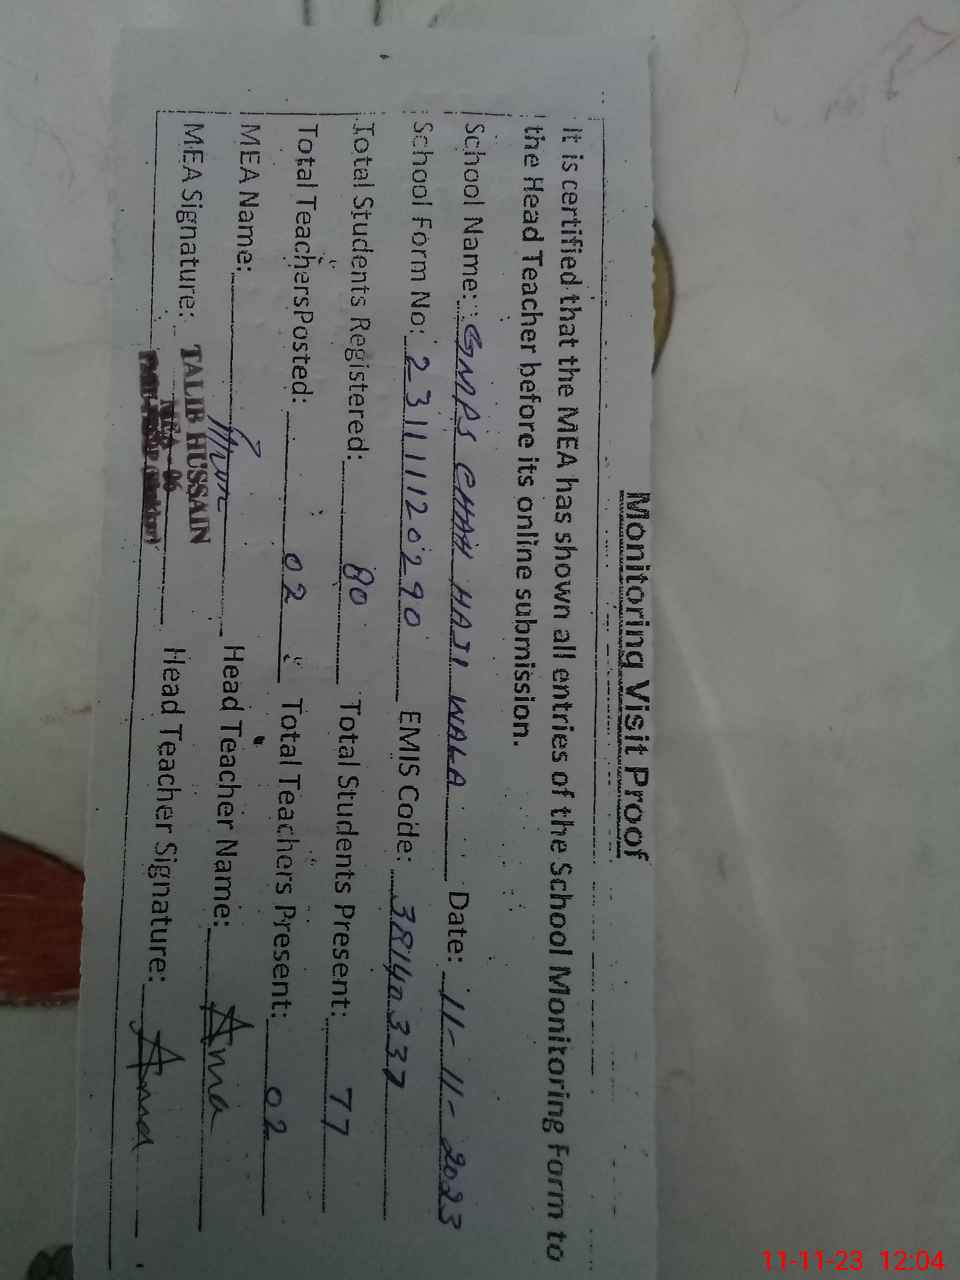 Monitoring Visit Proof
It is certified that the MEA has shown all entries of the School Monitoring Form to
the Head Teacher before its online submission.
School Name: GMPS CHAH HAJI WALA Date: 11-11-2023
School Form No: 2311120290 EMIS Code: 38140337
Total Students Registered: 80 Total Students Present: 77
Total TeachersPosted: 02 Total Teachers Present: 02
MEA Name: Head Teacher Name: Ama
MEA Signature: TALIB HUSSAIN Head Teacher Signature:
MEA - 06
11-11-23 12:04